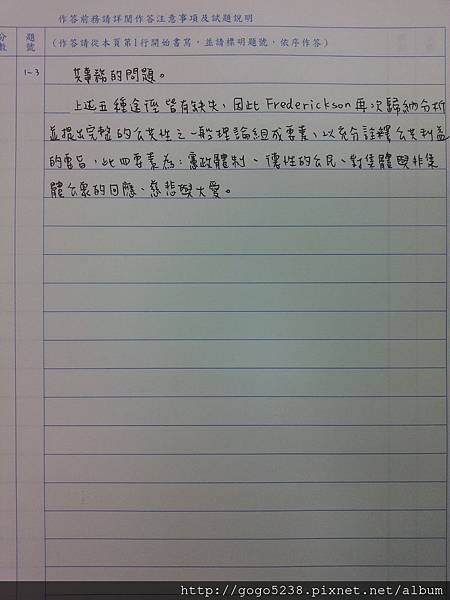 作答前務請詳閱作答注意事項及試題說明
分數 題號 (作答請從本頁第1行開始書寫,並請標明題號,依序作答)
1-3 共事務的問題。
上述五種途徑皆有缺失,因此Frederickson再次歸納分析
並提出完整的公共性之一般理論組成要素,以充分詮釋公共利益
的要旨,此四要素為:憲政體制、德性的公民、對集體與非集
體公衆的回應、慈悲與大愛。
http://gogo5238.pixnet.net/album